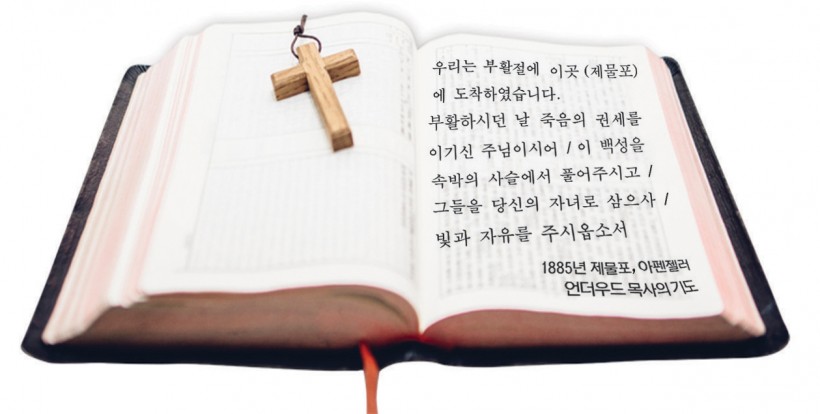 우리는 부활절에 이곳 (제물포)
에 도착하였습니다.
부활하시던 날 죽음의 권세를
이기신 주님이시어 / 이 백성을
속박의 사슬에서 풀어주시고 /
그들을 당신의 자녀로 삼으사 /
빛과 자유를 주시옵소서
1885년 제물포, 아펜젤러
언더우드 목사의기도